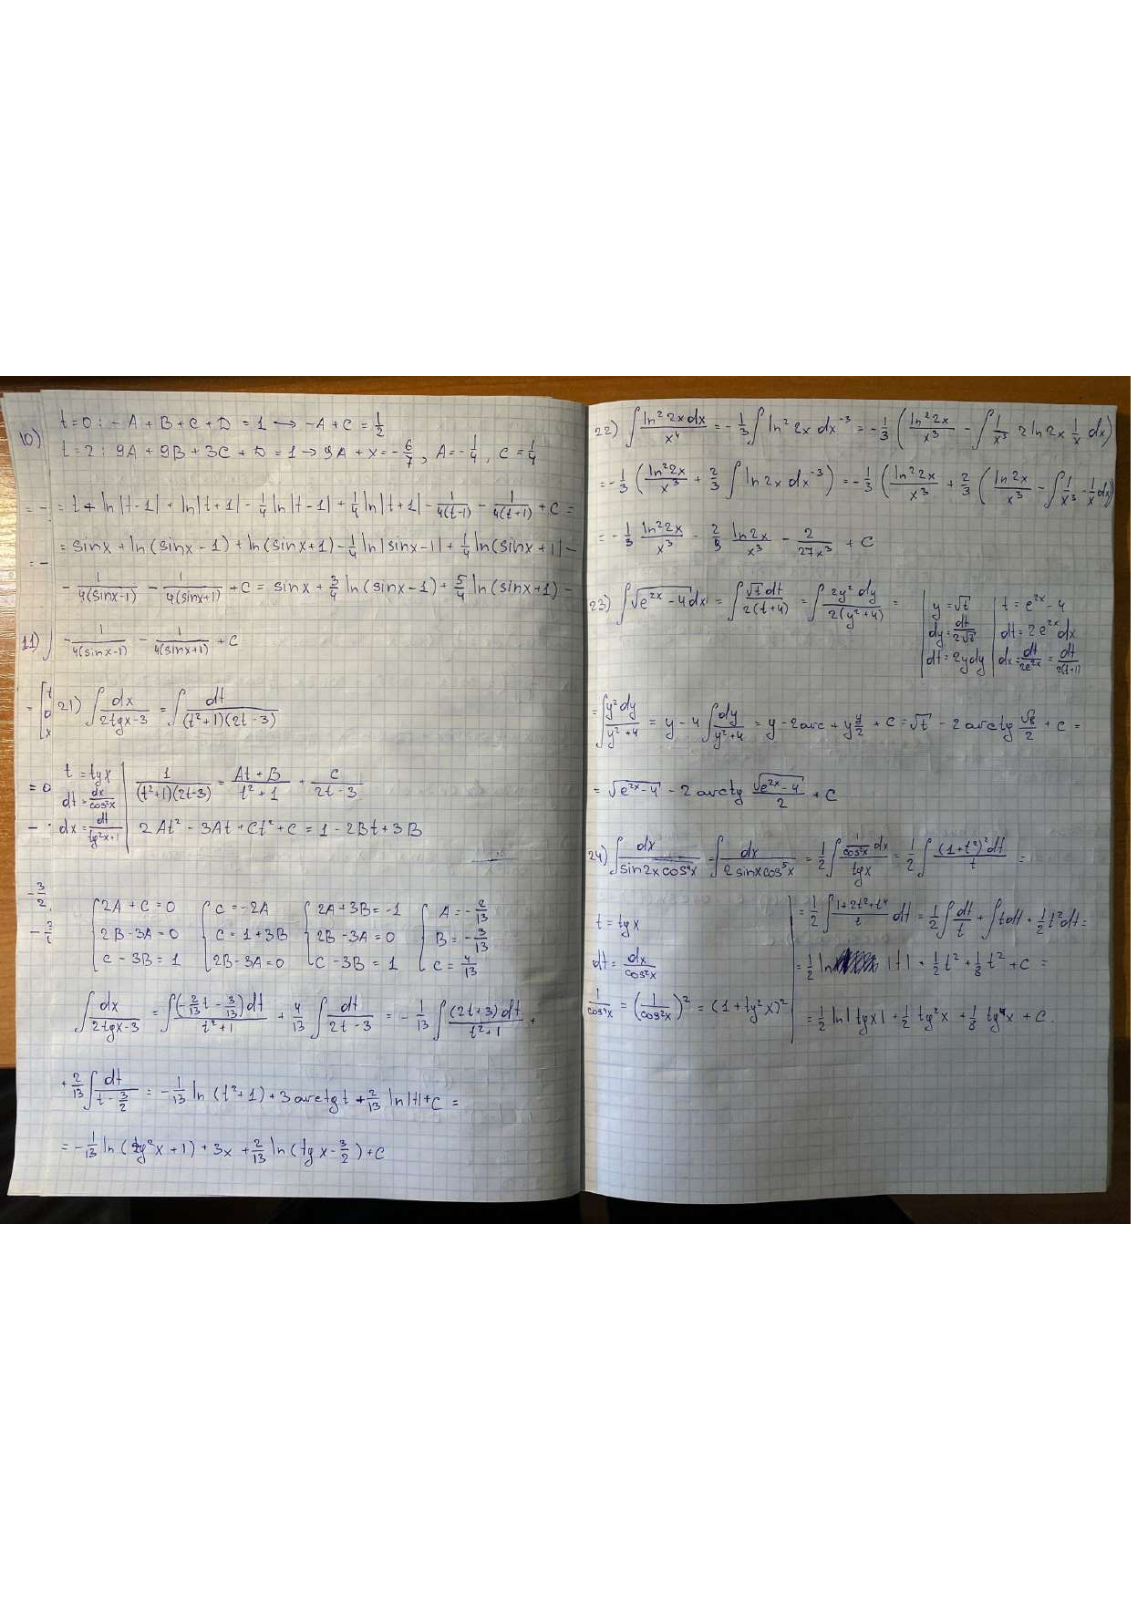 10) t=0: -A+B+C+D=1 → -A+C=1/2
t=2: 9A+9B+3C+D=1→9A+x=-6/7, A=-1/4, C=1/4
= - = t+ ln|t-1|+ln|t+1|-1/4 ln|t-1|+1/4 ln|t+1|-1/(4(t-1))-1/(4(t+1))+C=
= - = sinx+ln(sinx-1)+ln(sinx+1)-1/4 ln|sinx-1|+1/4 ln(sinx+1)-
-1/(4(sinx-1))-1/(4(sinx+1))+C=sinx+3/4 ln(sinx-1)+5/4 ln(sinx+1)-
11) ∫ -1/(4(sinx-1))-1/(4(sinx+1))+C
21) ∫dx/(2tgx-3)=∫dt/((t²+1)(2t-3))
t=tgx | 1/((t²+1)(2t-3))=(At+B)/(t²+1)+C/(2t-3)
dt=dx/cos²x
dx=dt/(tg²x+1) | 2At²-3At+Ct²+C=1-2Bt+3B
-3/2
{2A+C=0 {C=-2A {2A+3B=-1 {A=-2/13
{2B-3A=0 {C=1+3B {2B-3A=0 {B=-3/13
{C-3B=1 {2B-3A=0 {C-3B=1 {C=4/13
∫dx/(2tgx-3)=∫(-2/13 t-3/13)dt/(t²+1)+4/13∫dt/(2t-3)=-1/13∫(2t+3)dt/(t²+1)+
+2/13∫dt/(t-3/2)=-1/13 ln(t²+1)+3arctgt+2/13 ln|t|+C=
=-1/13 ln(tg²x+1)+3x+2/13 ln(tgx-3/2)+C
22) ∫ln²2xdx/x⁴=-1/3∫ln²2x dx⁻³=-1/3(ln²2x/x³-∫1/x³ 2ln2x 1/x dx)
=-1/3(ln²2x/x³+2/3∫ln2x dx⁻³)=-1/3(ln²2x/x³+2/3(ln2x/x³-∫1/x³·1/x dx)
=-1/3 ln²2x/x³-2/9 ln2x/x³-2/(27x³)+C
23) ∫√(e²ˣ-4)dx=∫√t dt/(2(t+4))=∫2y²dy/(2(y²+4))= | y=√t | t=e²ˣ-4
dy=dt/(2√t) | dt=2e²ˣdx
dt=2ydy | dx=dt/(2e²ˣ)=dt/(2(t+1))
=∫y²dy/(y²+4)=y-4∫dy/(y²+4)=y-2arc+y y/2+C=√t-2arctg √t/2+C=
=√(e²ˣ-4)-2arctg √(e²ˣ-4)/2+C
24) ∫dx/(sin2xcos⁴x) ∫dx/(2sinxcos⁵x)=1/2∫(1/cos⁶x dx)/tgx=1/2∫(1+t²)²dt/t=
t=tgx | =1/2∫(1+2t²+t⁴)/t dt=1/2∫dt/t+∫tdt+1/2t²dt=
dt=dx/cos²x | =1/2 ln|t|+1/2t²+1/8t²+C=
1/cos⁴x=(1/cos²x)²=(1+tg²x)² | =1/2 ln|tgx|+1/2 tg²x+1/8 tg⁴x+C.